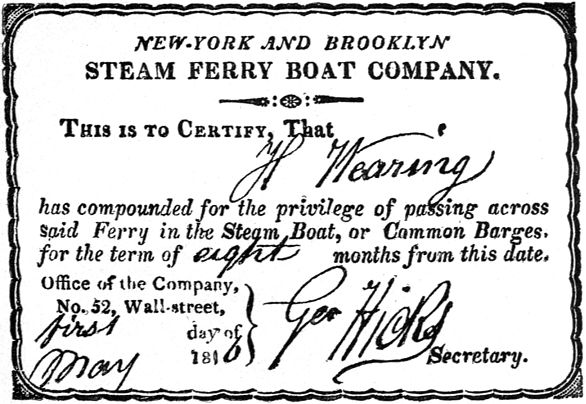 NEW-YORK AND BROOKLYN
STEAM FERRY BOAT COMPANY.
THIS IS TO CERTIFY, That
H Wearing
has compounded for the privilege of passing across
said Ferry in the Steam Boat, or Common Barges,
for the term of eight months from this date.
Office of the Company,
No. 52, Wall-street,
first day of
May 1816
Geo Hicks
Secretary.